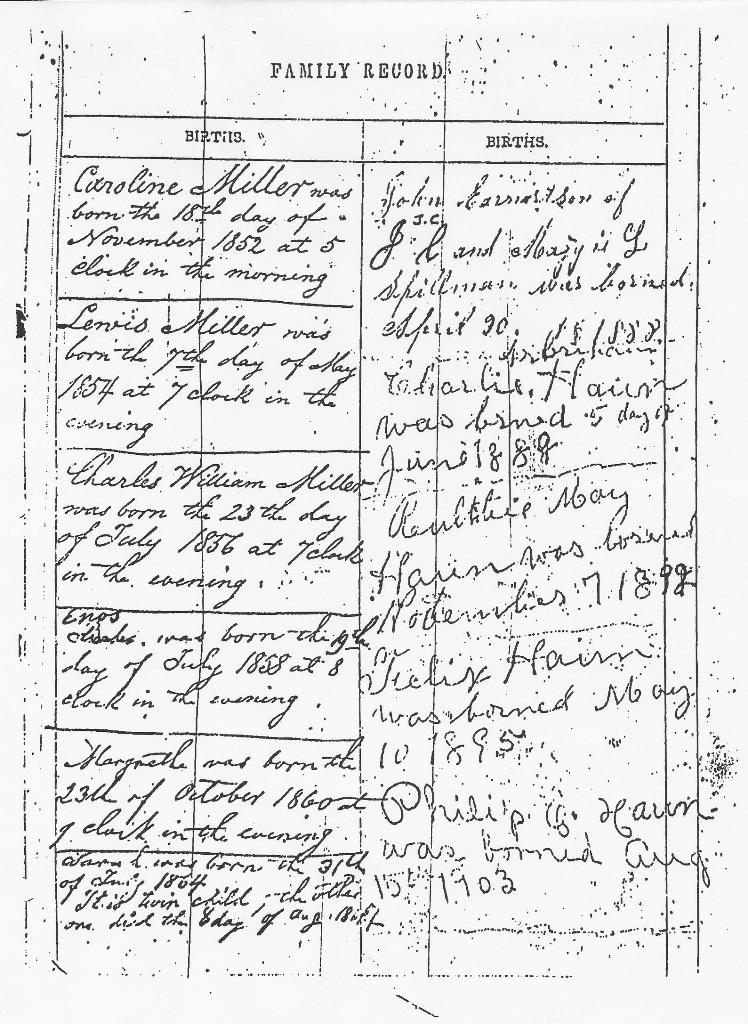 FAMILY RECORD
BIRTHS.
Caroline Miller was
born the 18th day of
November 1852 at 5
clock in the morning
Lewis Miller was
born the 7th day of May
1854 at 7 clock in the
evening
Charles William Miller
was born the 23th day
of July 1856 at 7 clock
in the evening.
Enos
was born the 19th
day of July 1858 at 8
clock in the evening.
Margrethe was born the
23th of October 1860 at
clock in the evening
was born the 31th
of July 1864
It is twin child, the other
one died the 8 day of Aug. 1864
BIRTHS.
John Earnest son of
J.C.
J C and Mary
Spillman was borned
April 20. 1888
Charlie Haun
was borned 5 day of
June 1888
May
Haun was borned
November 7 1892
Felix Haun
was borned May
10 1895
Philip G. Haun
was borned Aug
15 1903